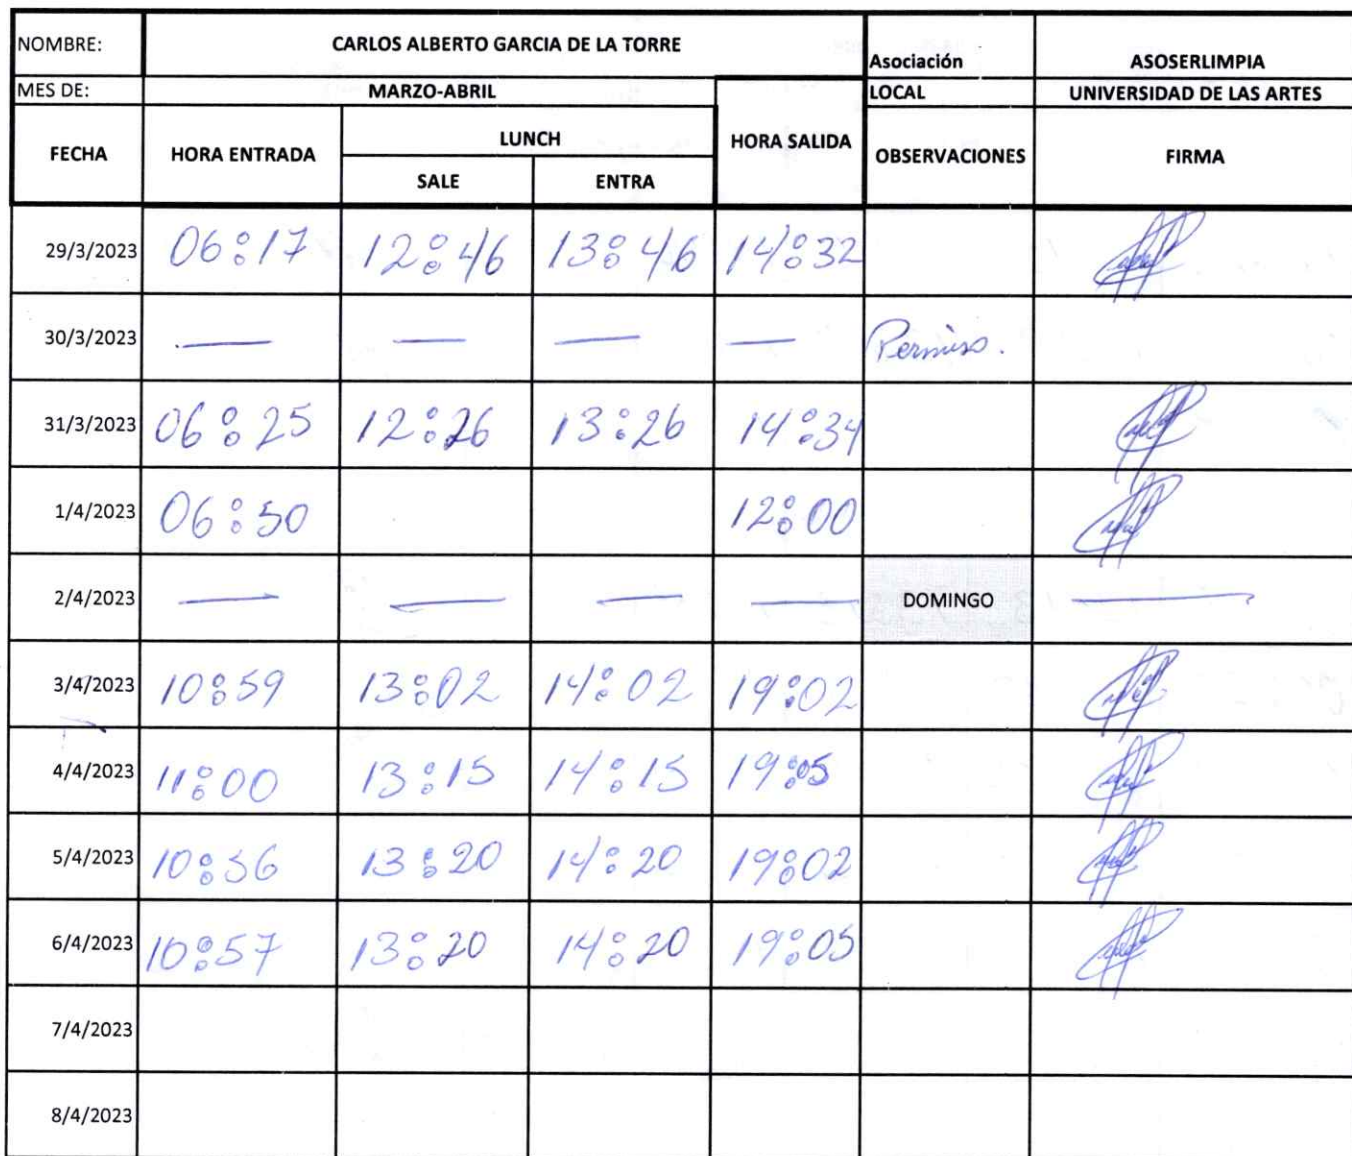 NOMBRE: CARLOS ALBERTO GARCIA DE LA TORRE Asociación ASOSERLIMPIA
MES DE: MARZO-ABRIL LOCAL UNIVERSIDAD DE LAS ARTES
FECHA HORA ENTRADA LUNCH HORA SALIDA OBSERVACIONES FIRMA
SALE ENTRA
29/3/2023 06:17 12:46 13:46 14:32
30/3/2023 — — — — Permiso.
31/3/2023 06:25 12:26 13:26 14:34
1/4/2023 06:50 12:00
2/4/2023 — — — — DOMINGO —
3/4/2023 10:59 13:02 14:02 19:02
4/4/2023 11:00 13:15 14:15 19:05
5/4/2023 10:56 13:20 14:20 19:02
6/4/2023 10:57 13:20 14:20 19:05
7/4/2023
8/4/2023